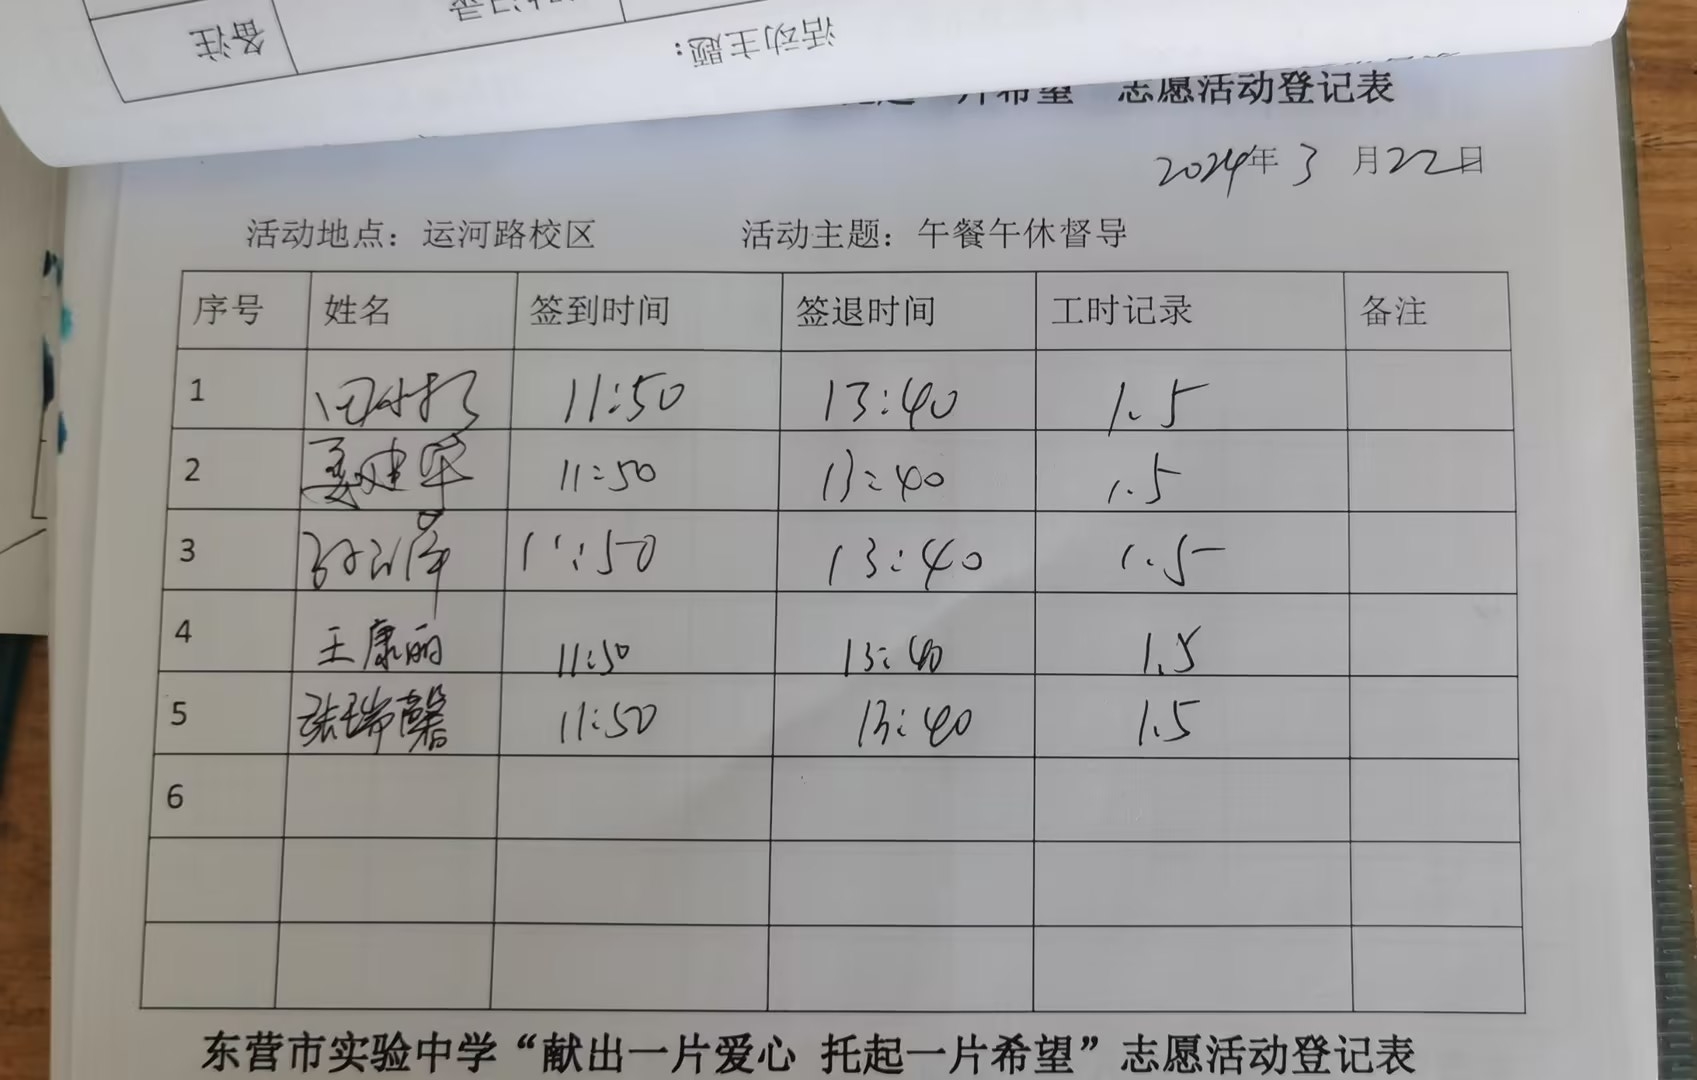 备注
活动主题：
片希望” 志愿活动登记表
2024年 3 月22日
活动地点：运河路校区 活动主题：午餐午休督导
序号 姓名 签到时间 签退时间 工时记录 备注
1 11:50 13:40 1.5
2 姜建华 11:50 13:40 1.5
3 11:50 13:40 1.5
4 王康丽 11:50 13:40 1.5
5 张瑞馨 11:50 13:40 1.5
6
东营市实验中学“献出一片爱心 托起一片希望”志愿活动登记表